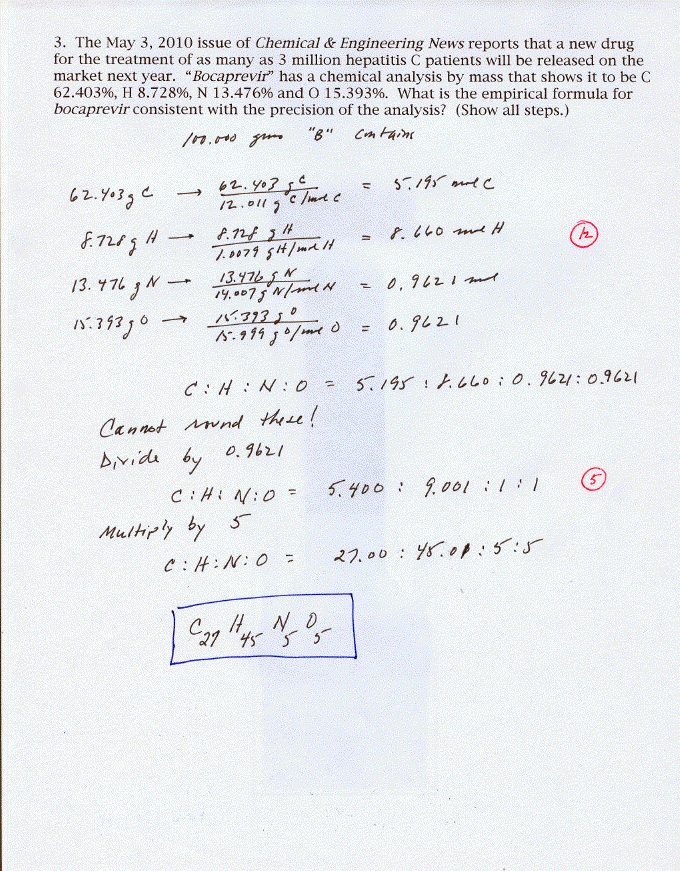 3. The May 3, 2010 issue of Chemical & Engineering News reports that a new drug
for the treatment of as many as 3 million hepatitis C patients will be released on the
market next year. “Bocaprevir” has a chemical analysis by mass that shows it to be C
62.403%, H 8.728%, N 13.476% and O 15.393%. What is the empirical formula for
bocaprevir consistent with the precision of the analysis? (Show all steps.)
100.000 grams "B" contains
62.403 g C → 62.403 g C / 12.011 g C/mol C = 5.195 mol C
8.728 g H → 8.728 g H / 1.0079 g H/mol H = 8.660 mol H
12
13.476 g N → 13.476 g N / 14.007 g N/mol N = 0.9621 mol
15.393 g O → 15.393 g O / 15.999 g O/mol O = 0.9621
C : H : N : O = 5.195 : 8.660 : 0.9621 : 0.9621
Cannot round these!
Divide by 0.9621
C : H : N : O = 5.400 : 9.001 : 1 : 1
5
Multiply by 5
C : H : N : O = 27.00 : 45.01 : 5 : 5
C27 H45 N5 O5